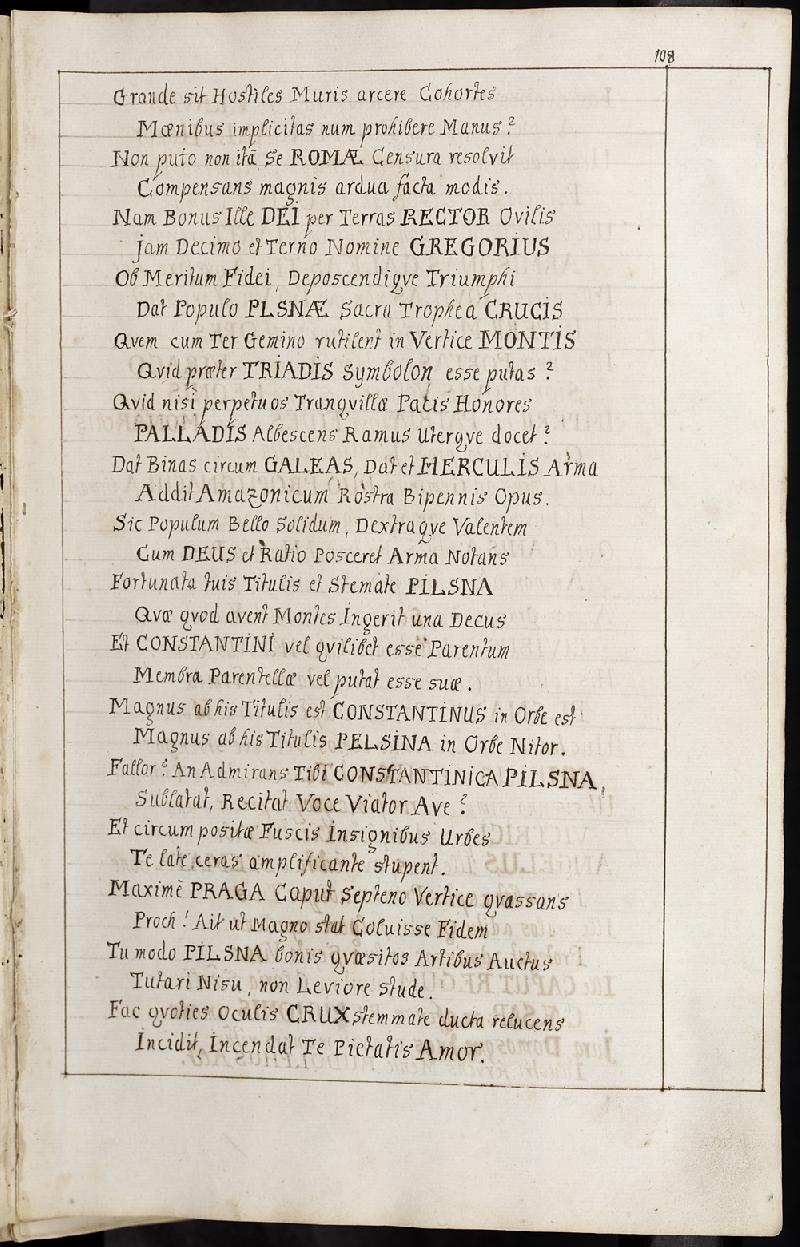 108
Grande sit Hostiles Muris arcere Cohortes
Mœnibus implicitas num prohibere Manus?
Non puto non ità se ROMÆ Censura resolvit
Compensans magnis ardua facta modis.
Nam Bonus Ille DEI per Terras RECTOR Ovilis
Jam Decimo et Terno Nomine GREGORIUS
Ob Meritum Fidei, Deposcendiqve Triumphi
Dat Populo PLSNÆ Sacra Trophea CRUCIS
Qvem cum Ter Gemino rutilent in Vertice MONTIS
Qvid præter TRIADIS Symbolon esse putas?
Qvid nisi perpetuos Tranqvilla Patis Honores
PALLADIS Albescens Ramus Uterqve docet?
Dat Binas circum GALEAS, Dat et HERCULIS Arma
Addit Amazonicum Rostra Bipennis Opus.
Sic Populum Bello Solidum, Dextraqve Valentem
Cum DEUS et Ratio Posceret Arma Notans
Fortunata tuis Titulis et Stemate PILSNA
Qvæ qvod avent Montes Ingerit una Decus
Et CONSTANTINI vel qvilibet esse Parentum
Membra Parentellæ vel putat esse suæ.
Magnus ab his Titulis est CONSTANTINUS in Orbe est
Magnus ab his Titulis PELSINA in Orbe Nitor.
Fallor? An Admirans Tibi CONSTANTINICA PILSNA,
Sublatat, Recitat Voce Viator Ave?
Et circumpositæ Fuscis Insignibus Urbes
Te late ceras amplificante stupent.
Maximè PRAGA Caput Septeno Vertice qvassans
Proch! Ait ut Magno stat Coluisse Fidem
Tu modo PILSNA bonis qvæsitos Artibus Auctus
Tutari Nisu, non Leviore stude.
Fac qvoties Oculis CRUX stemmate ducta relucens
Incidit, Incendat Te Pietatis Amor.